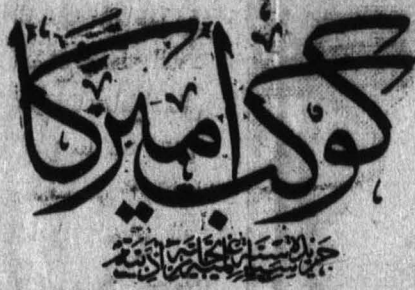 كوكب اميركا
جريدة سياسية تجارية ادبية